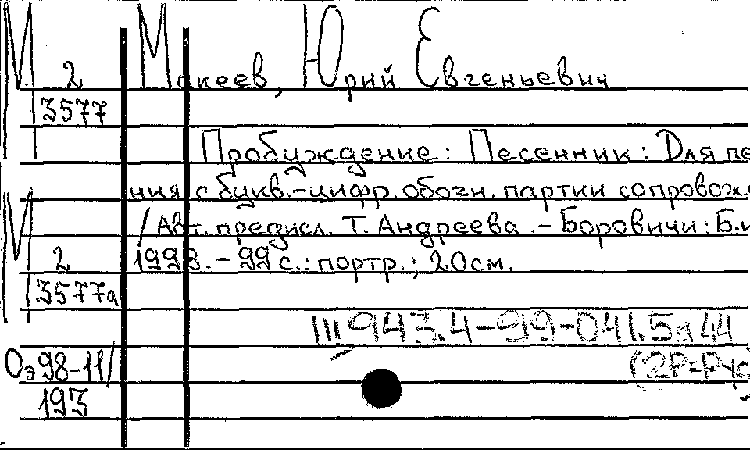 М 2 Макеев, Юрий Евгеньевич
3577
Пробуждение: Песенник: Для пе
ния с букв.-цифр. обозн. партии сопровож.
М / Авт. предисл. Т. Андреева. - Боровичи: Б.и
2 1993. - 99 с.: портр.; 20см.
3577а
III 943.4-99-041.5я44
Оэ98-11/ (2Р=Р
193